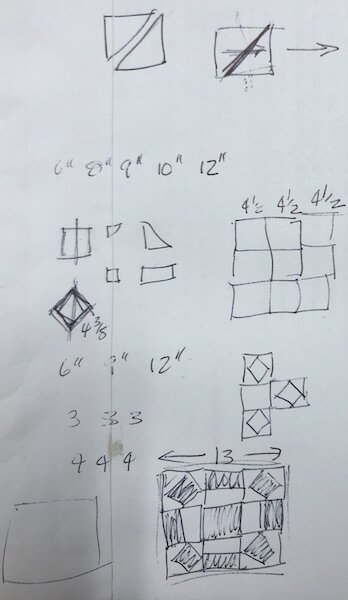 6" 8" 9" 10" 12"
4½ 4½ 4½
4⅜
6" 12"
3 3 3
4 4 4
13